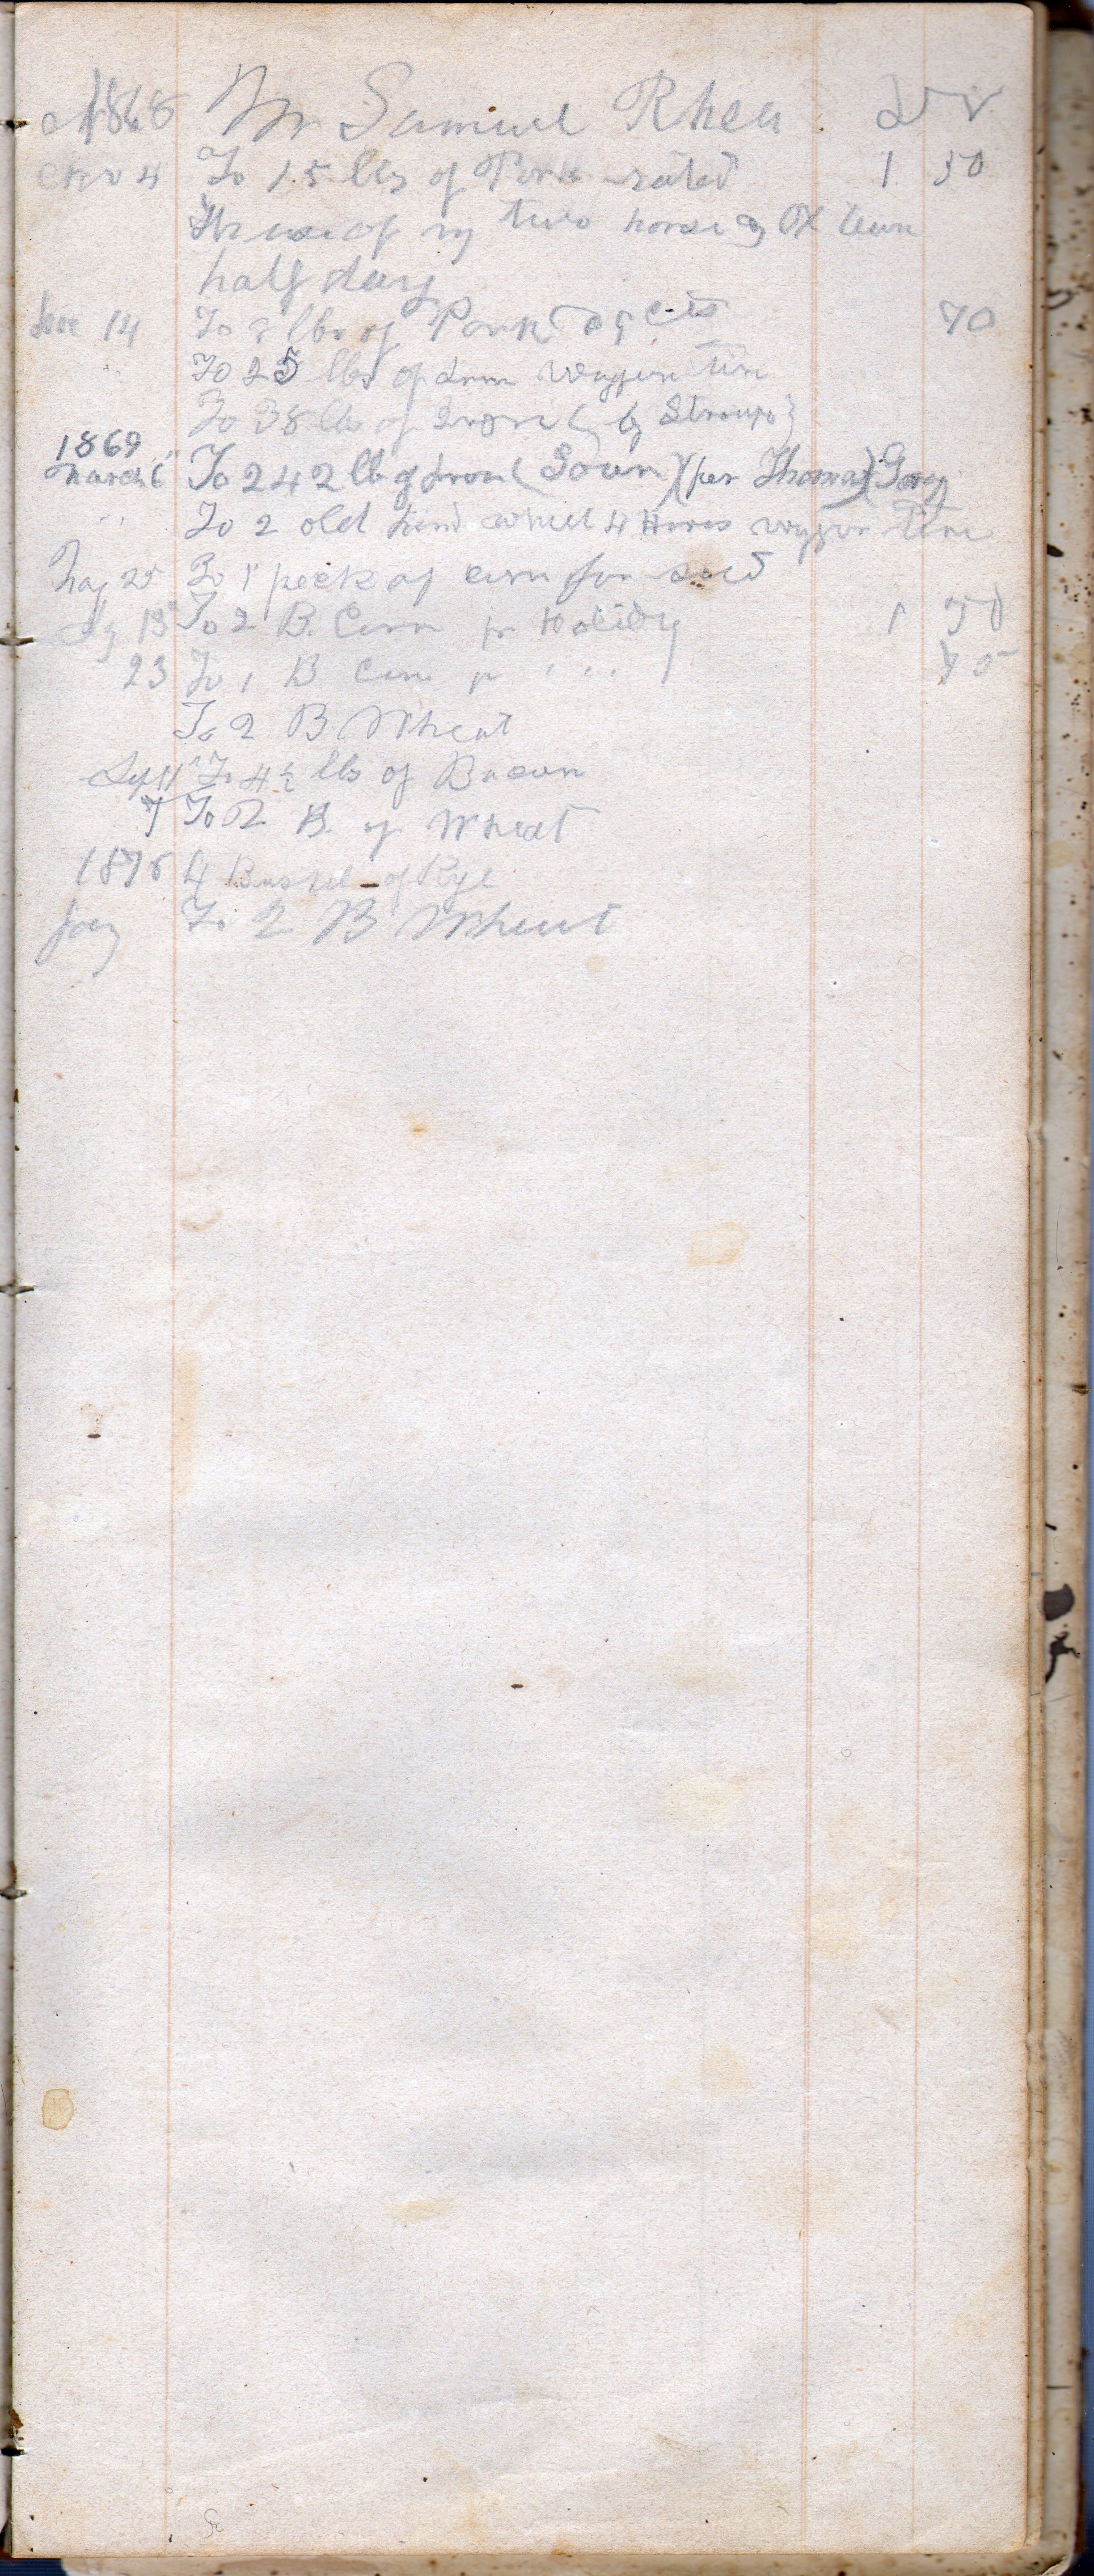 1868 Mr Samuel Rhea Dr
4 To 15 lbs of Pork salted 1 50
The use of my two horse & Ox team
half day
Dec 14 To 8 lbs of Pork cts 70
To 25 lbs of Iron waggon tire
To 38 lbs of Iron ( by Stroups }
1869
March 6 To 242 lb of Iron ( (per Thomas)
To 2 old hind wheel 4 Horse waggon tire
May 25 To 1 peck of corn for seed
13 To 2 B. Corn pr 1 50
23 To 1 B Corn pr " " " 75
To 2 B Wheat
Sept 1 To 4 1/2 lbs of Bacon
7 To 2 B. of Wheat
4 Bushel of Rye
To 2 B Wheat